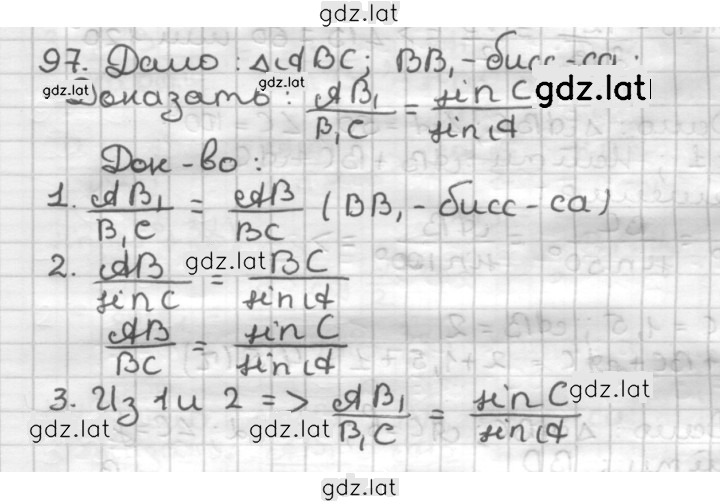 gdz.lat
97. Дано: ΔABC; BB₁ - бисс-са.
gdz.lat gdz.lat gdz.lat
Доказать: AB₁/B₁C = sin C/sin A
Док-во:
1. AB₁/B₁C = AB/BC (BB₁ - бисс-са)
gdz.lat
2. AB/sin C = BC/sin A
AB/BC = sin C/sin A
3. Из 1 и 2 => AB₁/B₁C = sin C/sin A
gdz.lat gdz.lat gdz.lat
gdz.lat